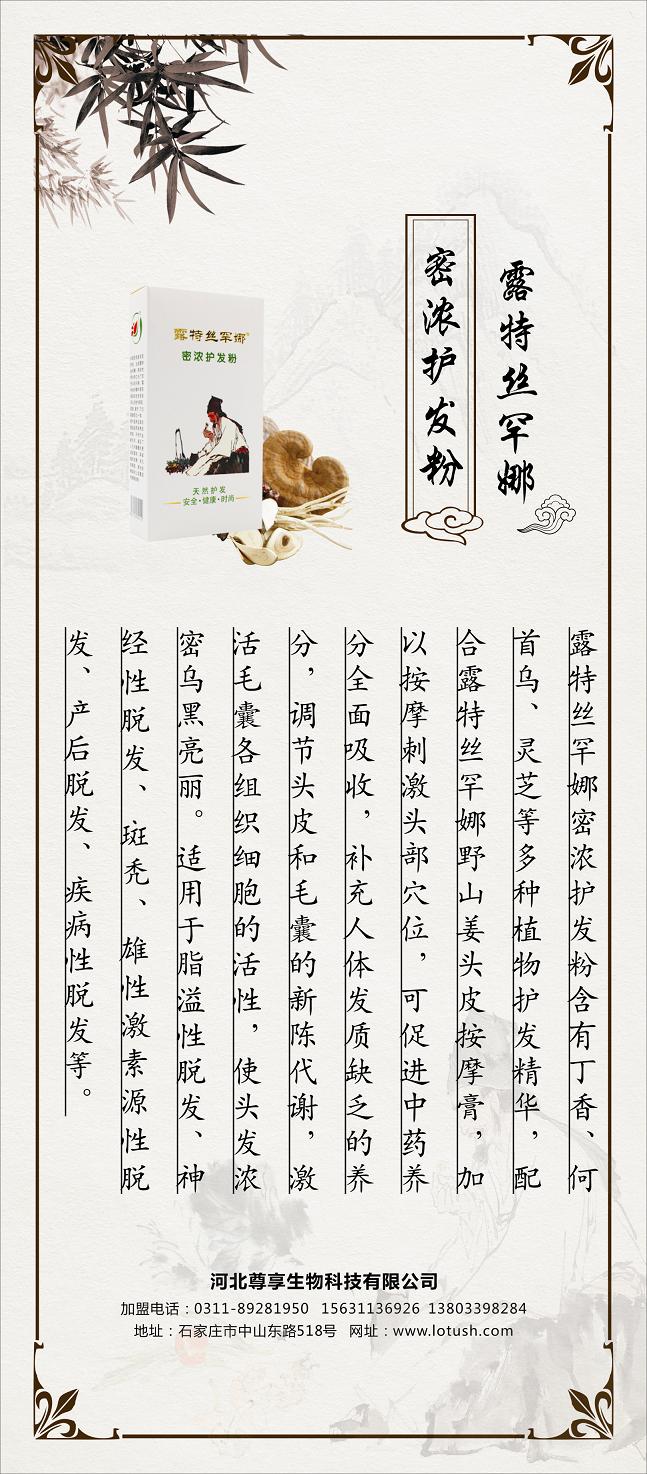 露特丝罕娜
密浓护发粉
露特丝罕娜®
密浓护发粉
天然护发
安全·健康·时尚
露特丝罕娜密浓护发粉含有丁香、何
首乌、灵芝等多种植物护发精华，配
合露特丝罕娜野山姜头皮按摩膏，加
以按摩刺激头部穴位，可促进中药养
分全面吸收，补充人体发质缺乏的养
分，调节头皮和毛囊的新陈代谢，激
活毛囊各组织细胞的活性，使头发浓
密乌黑亮丽。适用于脂溢性脱发、神
经性脱发、斑秃、雄性激素源性脱
发、产后脱发、疾病性脱发等。
河北尊享生物科技有限公司
加盟电话：0311-89281950 15631136926 13803398284
地址：石家庄市中山东路518号 网址：www.lotush.com